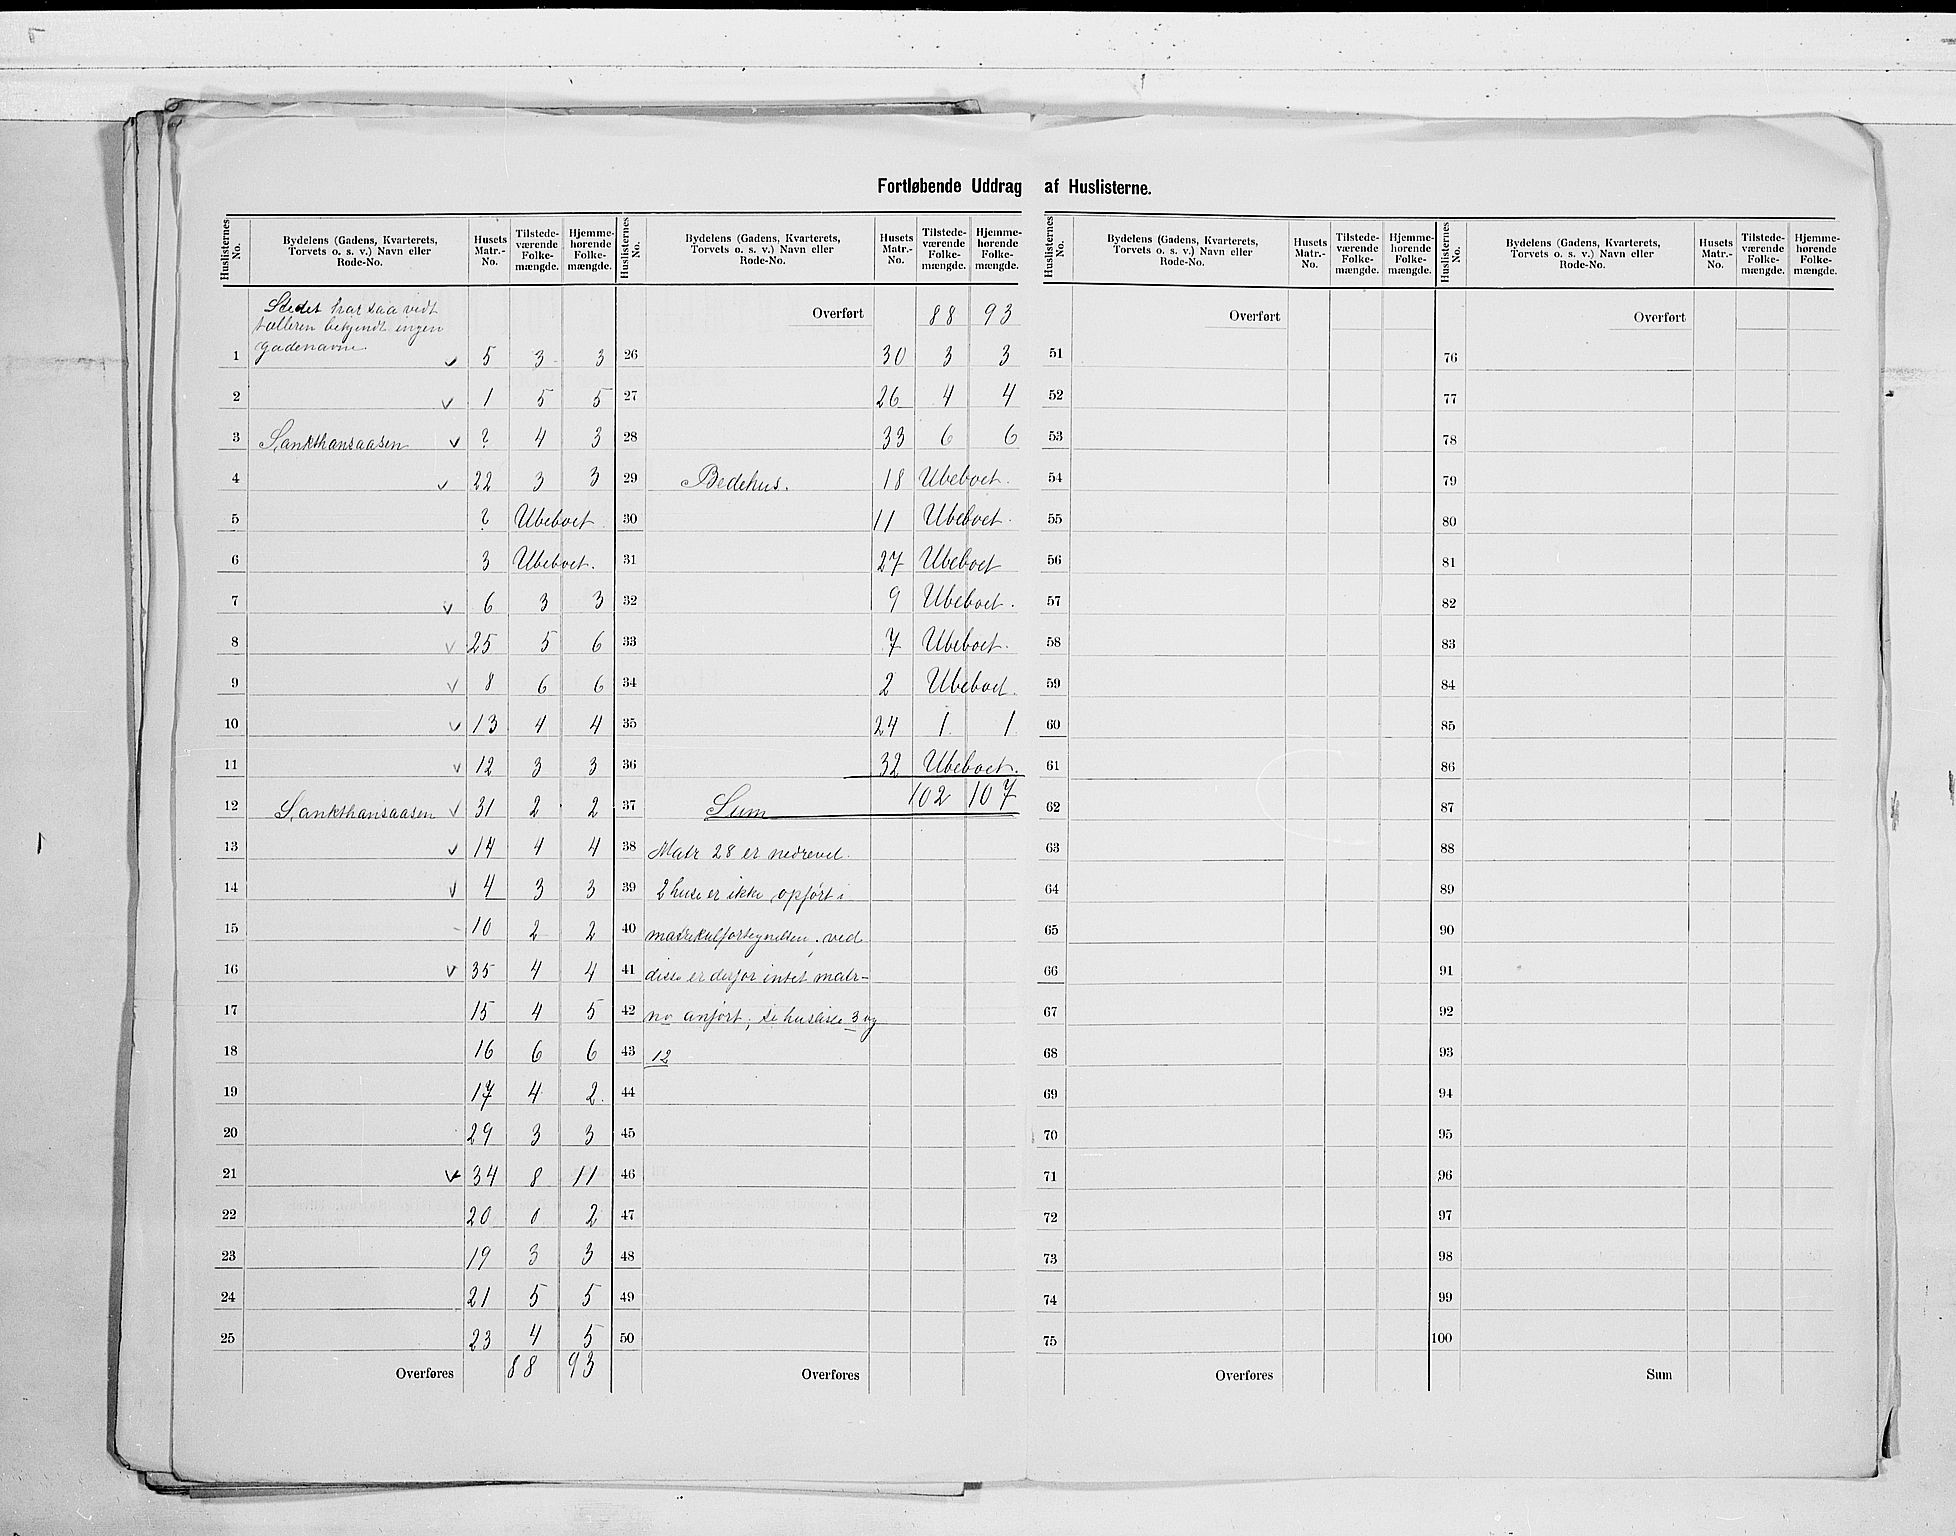 Fortløbende Uddrag af Huslisterne.
Huslisternes No. Bydelens (Gadens, Kvarterets, Torvets o. s. v.) Navn eller Rode-No. Husets Matr.-No. Tilstedeværende Folkemængde. Hjemmehørende Folkemængde.
Stedet har saa vidt
tælleren bekjendt ingen
gadenavne
1 v 5 3 3
2 v 1 5 5
3 Sankthansaasen v ? 4 3
4 v 22 3 3
5 ? Ubeboet.
6 3 Ubeboet.
7 v 6 3 3
8 v 25 5 6
9 v 8 6 6
10 v 13 4 4
11 v 12 3 3
12 Sankthansaasen v 31 2 2
13 v 14 4 4
14 v 4 3 3
15 10 2 2
16 v 35 4 4
17 15 4 5
18 16 6 6
19 17 4 2.
20 29 3 3
21 v 34 8 11
22 20 0 2
23 19 3 3
24 21 5 5
25 23 4 5
Overføres 88 93
Huslisternes No. Bydelens (Gadens, Kvarterets, Torvets o. s. v.) Navn eller Rode-No. Husets Matr.-No. Tilstedeværende Folkemængde. Hjemmehørende Folkemængde.
Overført 88 93
26 30 3 3
27 26 4 4
28 33 6 6
29 Bedehus. 18 Ubeboet.
30 11 Ubeboet.
31 27 Ubeboet
32 9 Ubeboet.
33 7 Ubeboet.
34 2 Ubeboet.
35 24 1 1
36 32 Ubeboet.
37 Sum 102 107
38 Matr 28 er nedrevet.
39 2 huse er ikke opført i
40 matrikulfortegnelsen, ved
41 disse er derfor intet matr-
42 no anført, se husliste 3 og
43 12
44
45
46
47
48
49
50
Overføres
Huslisternes No. Bydelens (Gadens, Kvarterets, Torvets o. s. v.) Navn eller Rode-No. Husets Matr.-No. Tilstedeværende Folkemængde. Hjemmehørende Folkemængde.
Overført
51
52
53
54
55
56
57
58
59
60
61
62
63
64
65
66
67
68
69
70
71
72
73
74
75
Overføres
Huslisternes No. Bydelens (Gadens, Kvarterets, Torvets o. s. v.) Navn eller Rode-No. Husets Matr.-No. Tilstedeværende Folkemængde. Hjemmehørende Folkemængde.
Overført
76
77
78
79
80
81
82
83
84
85
86
87
88
89
90
91
92
93
94
95
96
97
98
99
100
Sum